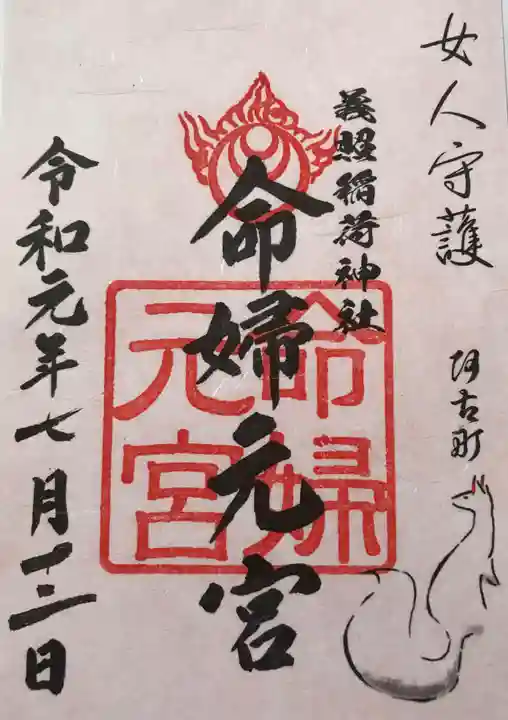 女人守護
阿古町
義照稲荷神社
命婦元宮
命婦
元宮
令和元年七月十三日